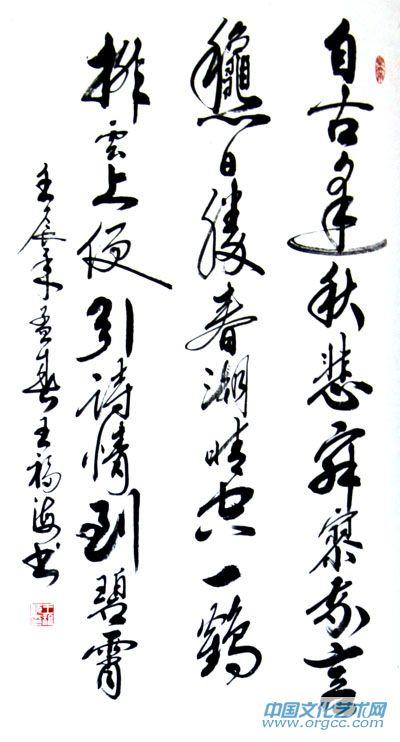 自古逢秋悲寂寥我言
龝日勝春湖晴空一鶴
排雲上便引詩情到碧霄
壬辰年孟春王福海书
中国文化艺术网
www.orgcc.com